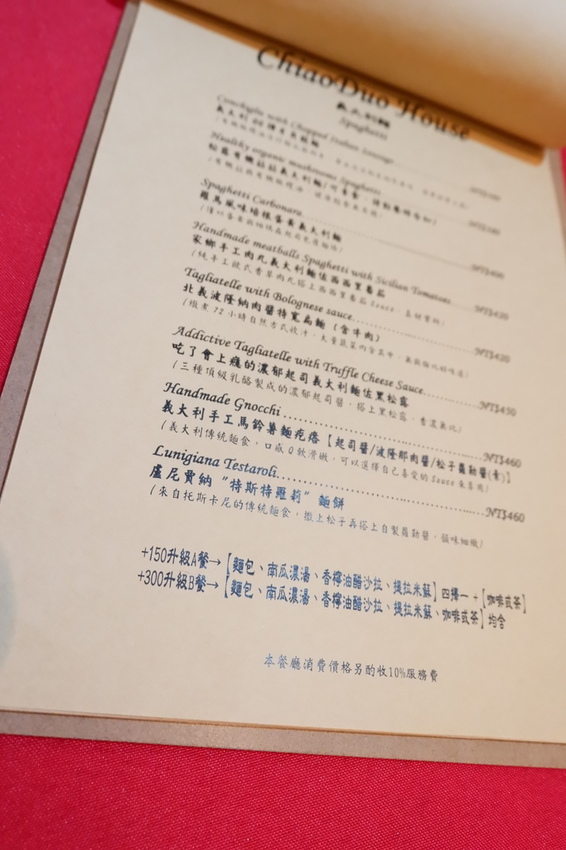 ChiaoDuo House
義大利麵
Spaghetti
Conchiglie with Chopped Italian Sausage
NT$380
Healthy organic mushrooms Spaghetti
NT$380
Spaghetti Carbonara
羅馬風味培根蛋黃義大利麵
NT$400
Handmade meatballs Spaghetti with Sicilian Tomatoes
NT$430
家鄉手工肉丸義大利麵佐西西里番茄
Tagliatelle with Bolognese sauce
NT$430
北義波隆納肉醬特寬扁麵 (含牛肉)
Addictive Tagliatelle with Truffle Cheese Sauce
NT$450
吃了會上癮的濃郁起司義大利麵佐黑松露
(三種頂級乳酪製成的濃郁起司醬，搭上黑松露，香濃無比)
Handmade Gnocchi
NT$460
義大利手工馬鈴薯麵疙瘩【起司醬/波隆那肉醬/松子羅勒醬(素)】
(義大利傳統麵食，口感Q軟滑嫩，可以選擇自己喜愛的Sauce來享用)
Lunigiana Testaroli
NT$460
盧尼賈納 "特斯特羅莉" 麵餅
(來自托斯卡尼的傳統麵食，撒上松子再搭上自製羅勒醬，韻味細緻)
+150升級A餐→【麵包、南瓜濃湯、香檸油醋沙拉、提拉米蘇】四擇一 +【咖啡或茶】
+300升級B餐→【麵包、南瓜濃湯、香檸油醋沙拉、提拉米蘇、咖啡或茶】均含
本餐廳消費價格另酌收10%服務費